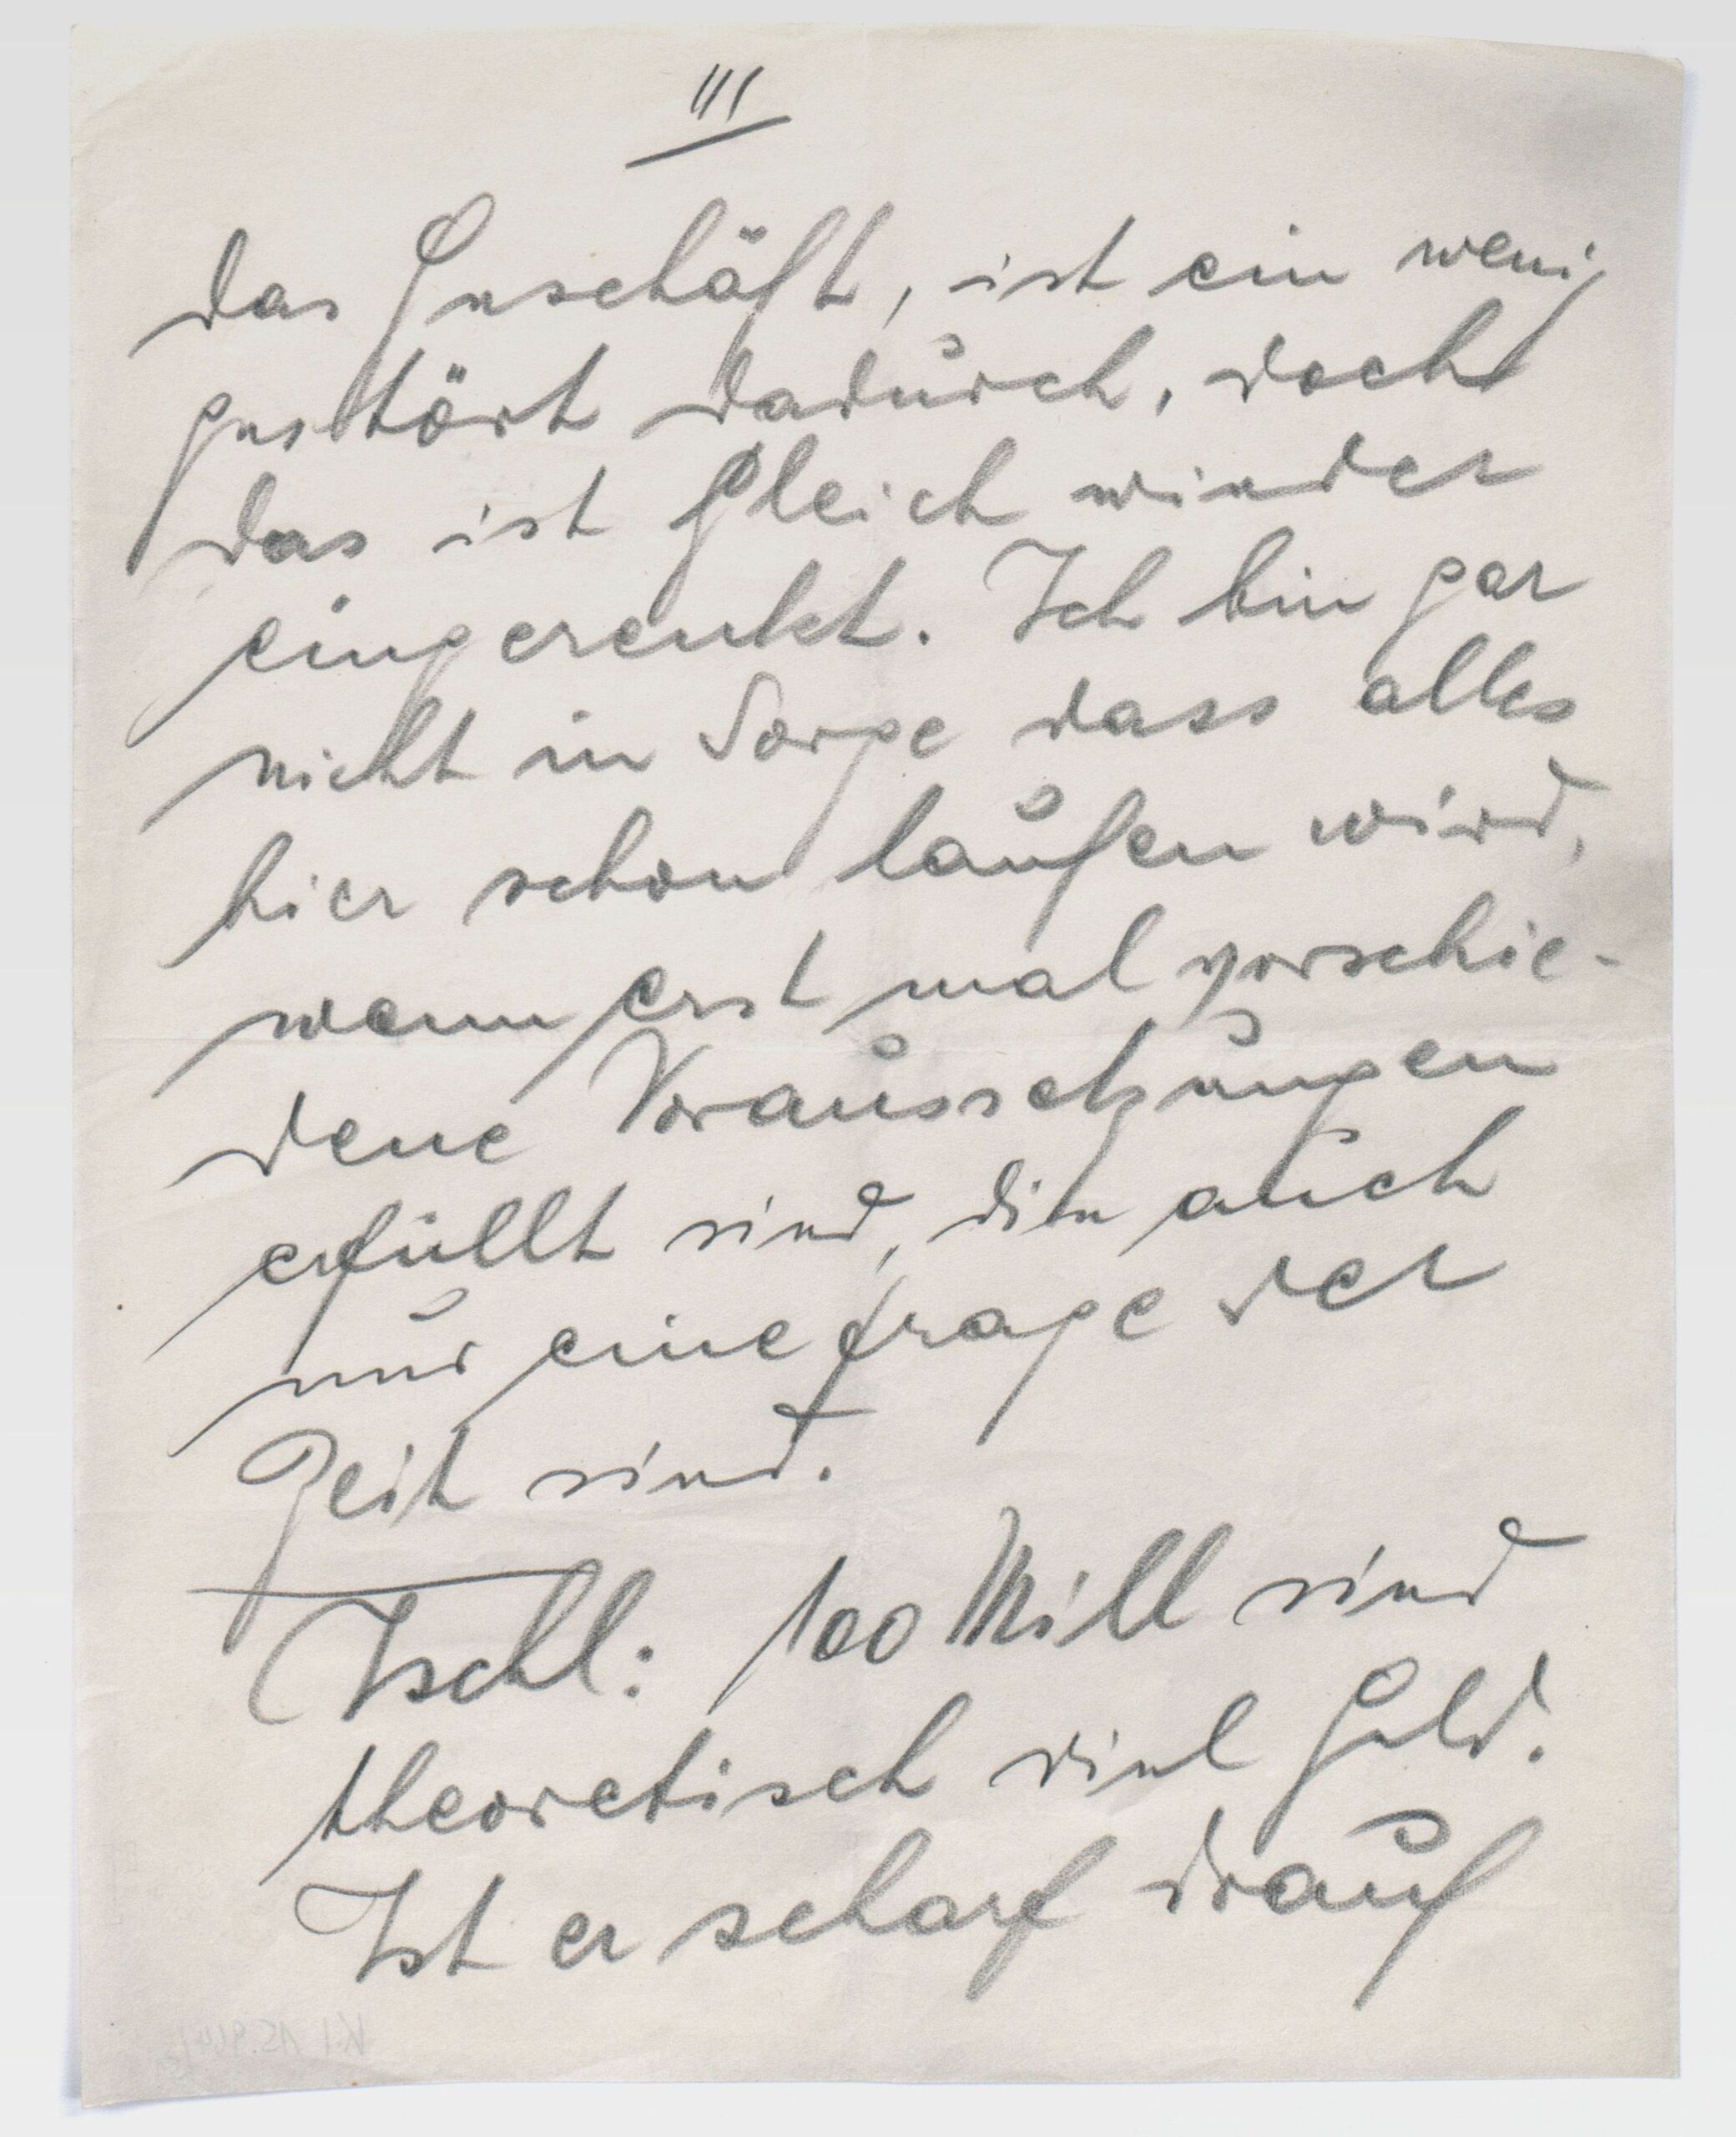 III
das Geschäft, ist ein wenig
gestört dadurch, doch
das ist gleich wieder
eingerenkt. Ich bin gar
nicht in Sorge dass alles
hier schon laufen wird,
wenn erst mal verschie-
dene Voraussetzungen
erfüllt sind, die auch
nur eine Frage der
Zeit sind.
Ischl: 100 Mill sind
theoretisch viel Geld.
Ist er scharf drauf